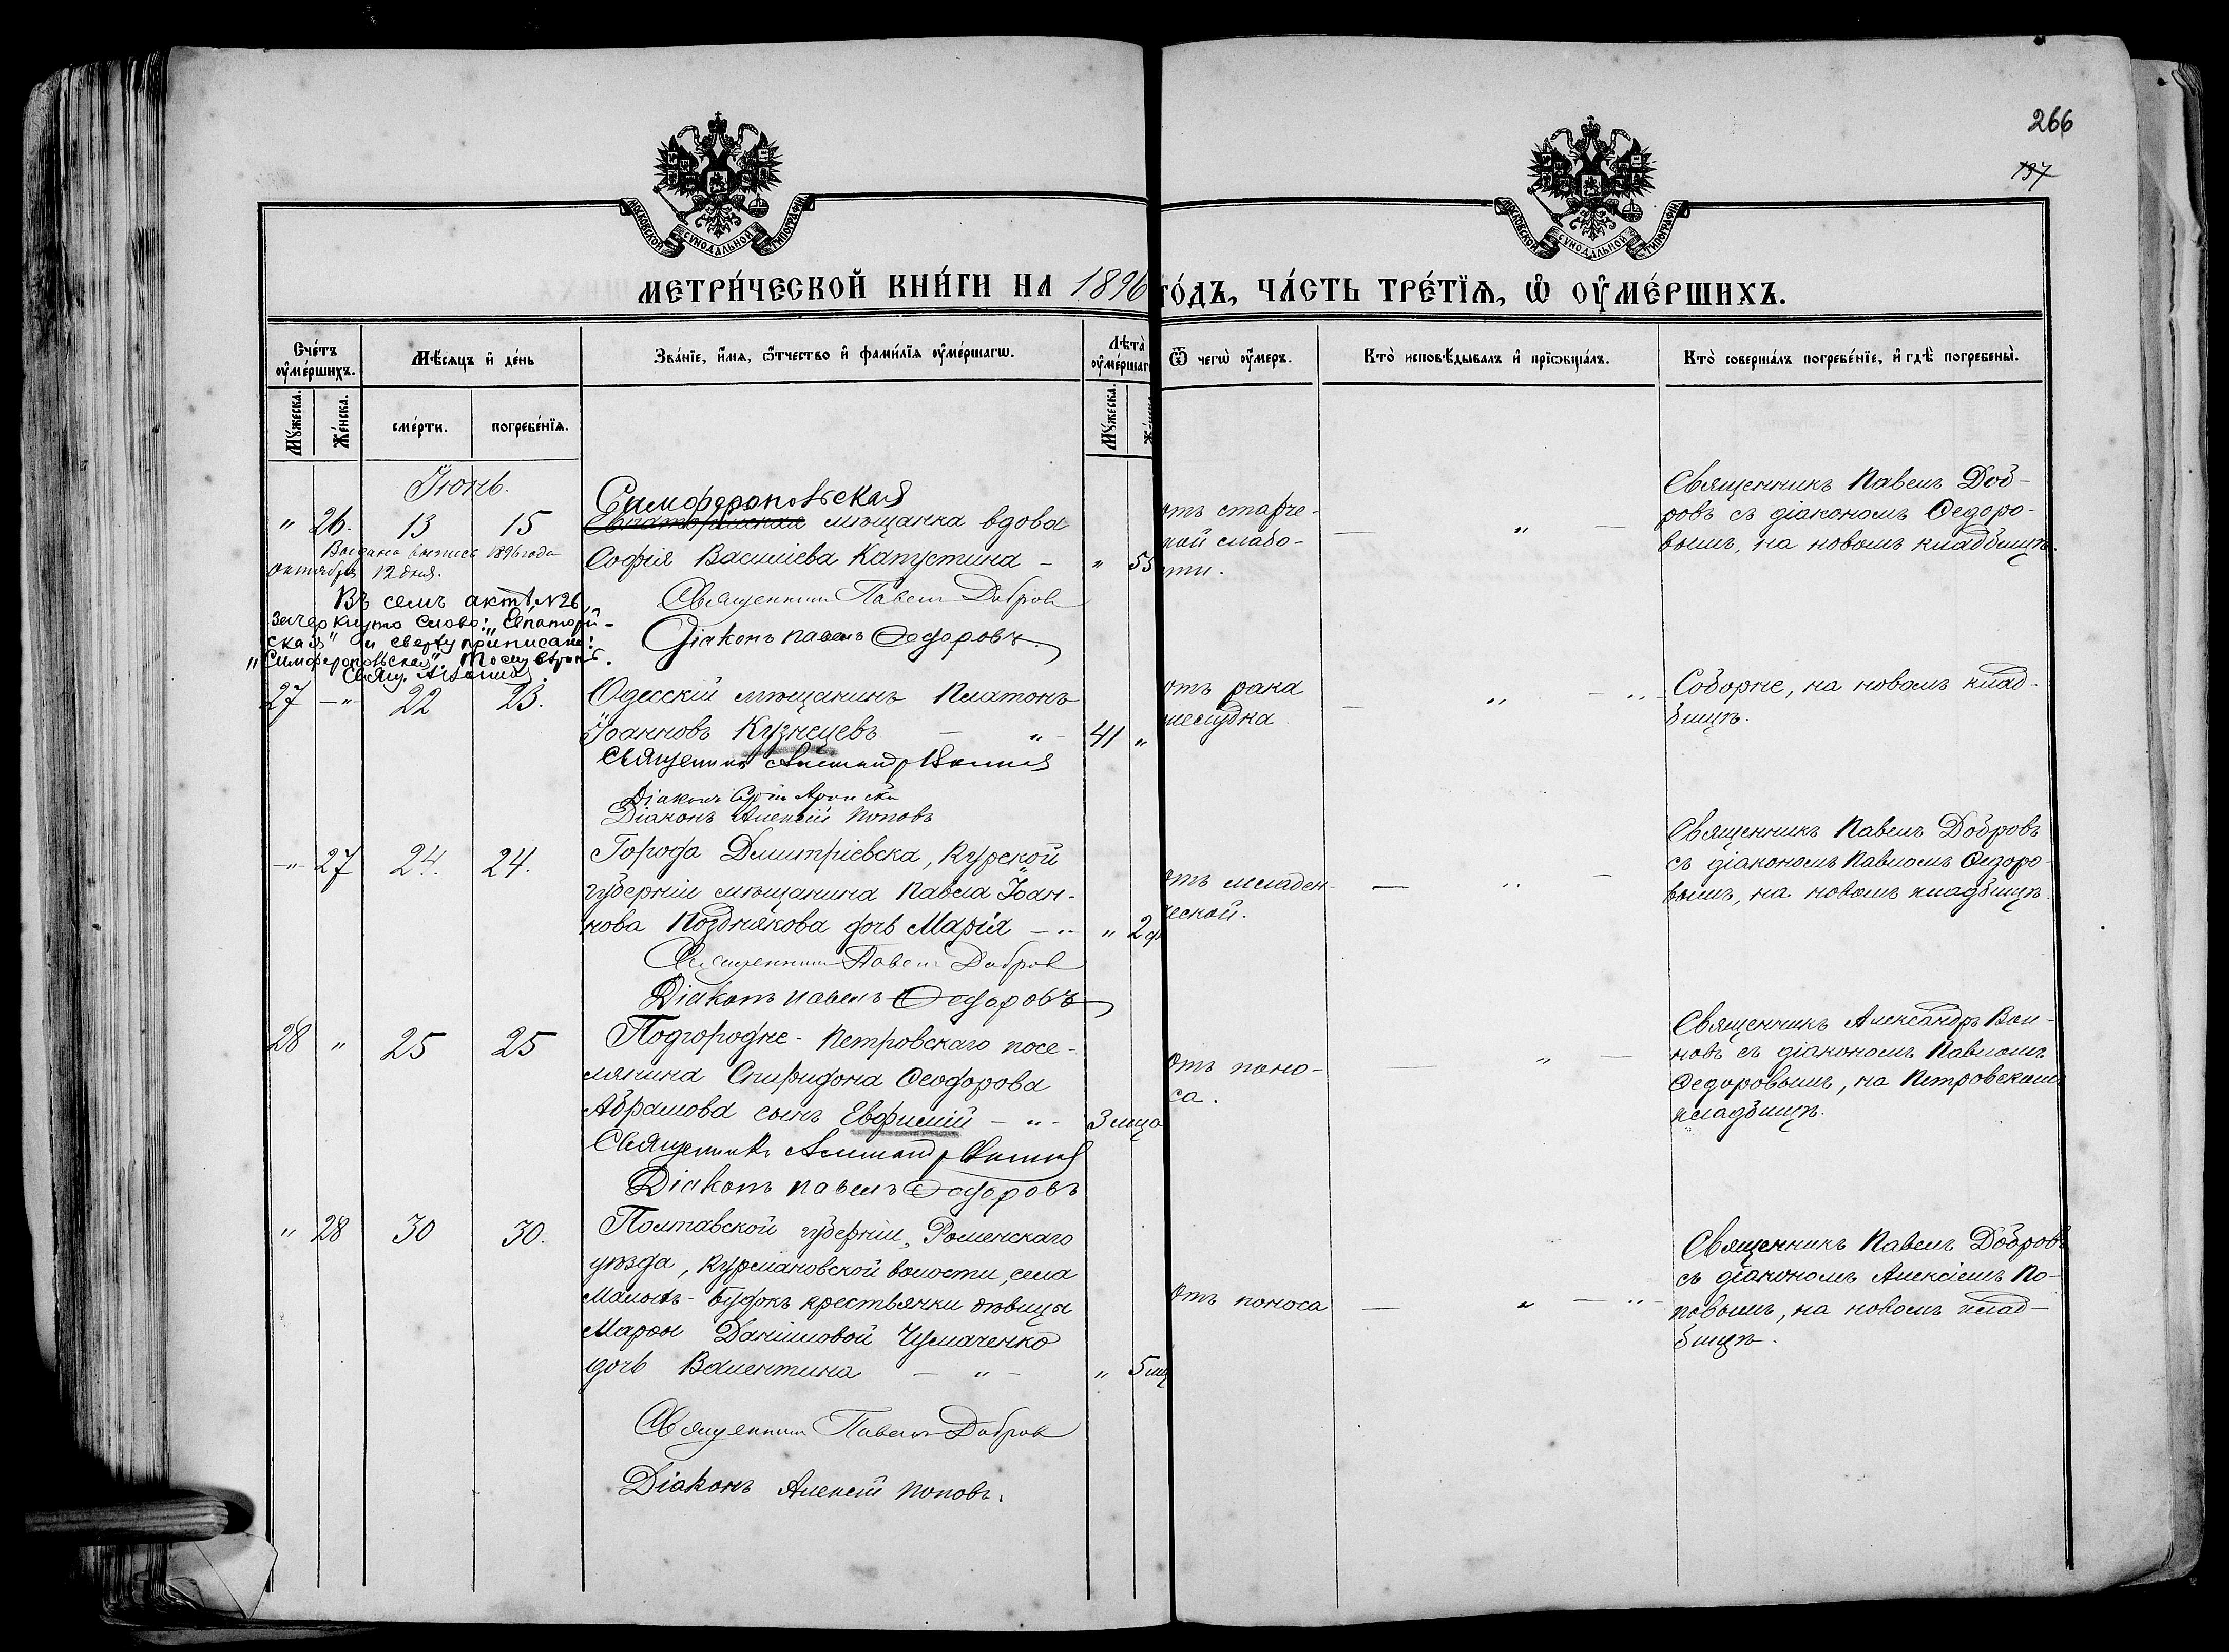 266
197
МОСКОВСКОЙ СѴНОДАЛЬНОЙ ТИПОГРАФІИ
МОСКОВСКОЙ СѴНОДАЛЬНОЙ ТИПОГРАФІИ
МЕТРИ́ЧЕСКОЙ КНИ́ГИ НА 1896 ГО́ДЪ, ЧА́СТЬ ТРЕ́ТЇѦ, Ѡ҆ ОУ҆МЕ́РШИХЪ.
Сче́тъ оу҆ме́ршихъ.
Мѣ́сяцъ и҆ де́нь
Зва́нїе, и҆́мѧ, ѻ҆́тчество и҆ фами́лїѧ оу҆ме́ршагѡ.
Лѣта̀ оу҆ме́ршаг
Ѿ чегѡ̀ оу҆́меръ.
Кто̀ исповѣ́дывалъ и҆ прїѡбща́лъ.
Кто̀ соверша́лъ погребе́нїе, и҆ гдѣ̀ погребены̀.
Мꙋ́жеска.
Же́нска.
сме́рти.
погребе́нїѧ.
Мꙋ́жеска.
Іюнь.
" 26. 13 15
Симферопольская
Евпаторійская мѣщанка вдова
Софія Васильева Капустина - " 55
Священникъ Павелъ Добровъ
Діаконъ Павелъ Ѳедоровъ
отъ старче-
кой слабо-
сти.
Священникъ Павелъ Доб-
ровъ съ діакономъ Ѳедоро-
вымъ, на новомъ кладбищѣ.
Выдана выпись 1896 года
октября 12 дня.
Въ семъ актѣ № 26
зачеркнуто слово: „Евпаторій-
ская" и сверху приписано:
„Симферопольская".
27 - " - 22 23.
Одесскій мѣщанинъ Платонъ
Іоанновъ Кузнецевъ - " - 41 "
Священникъ Александръ
Діаконъ
Діаконъ Алексій Поповъ
отъ рака
желудка.
Соборне, на новомъ клад-
бищѣ.
- " - 27 24. 24.
Города Дмитріевска, Курской
губерніи мѣщанина Павла Іоан-
нова Позднякова дочь Марія - " - " 2
Священникъ Павелъ Добровъ
Діаконъ Павелъ Ѳедоровъ
отъ младен-
ческой.
Священникъ Павелъ Добровъ
съ діакономъ Павломъ Ѳедоро-
вымъ, на новомъ кладбищѣ.
28 " 25 25
Подгородне-Петровскаго посе-
лянина Спиридона Ѳеодорова
Абрамова сынъ Евфимій - " - 3 мца
Священникъ Александръ
Діаконъ Павелъ Ѳедоровъ
Отъ поно-
са.
Священникъ Александръ Вои-
новъ съ діакономъ Павломъ
Ѳедоровымъ, на Петровскомъ
кладбищѣ.
" 28 30 30.
Полтавской губерніи, Роменскаго
уѣзда, Курмановской волости, села
Малыхъ-Будокъ крестьянки дѣвицы
Марѳы Данииловой Чумаченко
дочь Валентина - " - " 5 мц
Священникъ Павелъ Добровъ
Діаконъ Алексій Поповъ.
Отъ поноса
Священникъ Павелъ Добровъ
съ діакономъ Алексіемъ По-
повымъ, на новомъ клад-
бищѣ.